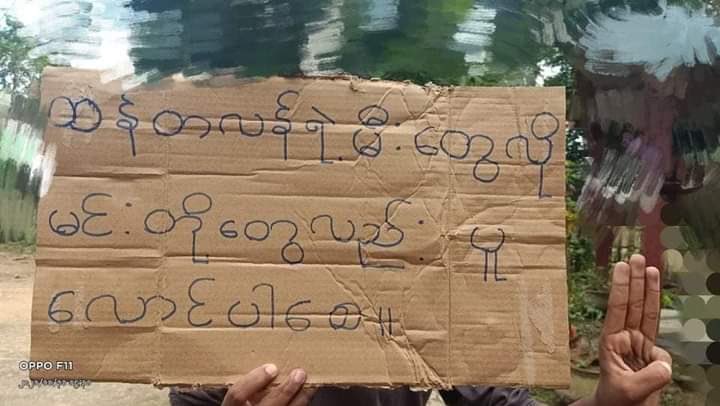 ထန်တလန်ရဲ့မီးတွေလို
မင်းတို့တွေလည်း ပူ
လောင်ပါစေ။
OPPO F11